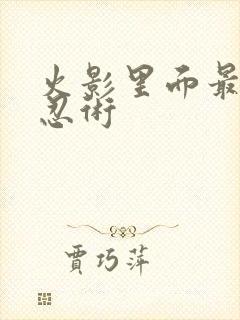 火影里面最
忍術
賈巧萍